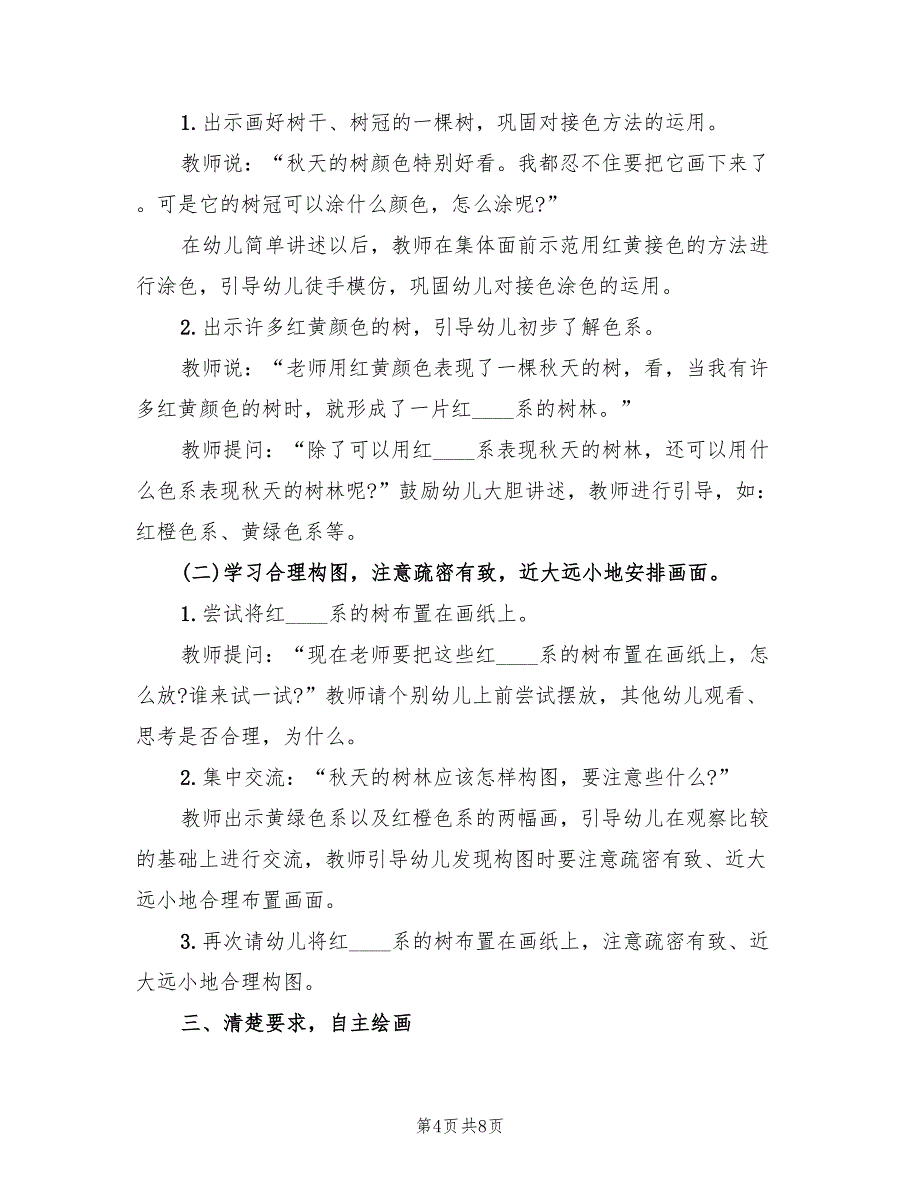 1.出示画好树干、树冠的一棵树，巩固对接色方法的运用。
教师说：“秋天的树颜色特别好看。我都忍不住要把它画下来了
。可是它的树冠可以涂什么颜色，怎么涂呢?”
在幼儿简单讲述以后，教师在集体面前示范用红黄接色的方法进
行涂色，引导幼儿徒手模仿，巩固幼儿对接色涂色的运用。
2.出示许多红黄颜色的树，引导幼儿初步了解色系。
教师说：“老师用红黄颜色表现了一棵秋天的树，看，当我有许
多红黄颜色的树时，就形成了一片红____系的树林。”
教师提问：“除了可以用红____系表现秋天的树林，还可以用什
么色系表现秋天的树林呢?”鼓励幼儿大胆讲述，教师进行引导，如：
红橙色系、黄绿色系等。
(二)学习合理构图，注意疏密有致，近大远小地安排画面。
1.尝试将红____系的树布置在画纸上。
教师提问：“现在老师要把这些红____系的树布置在画纸上，怎
么放?谁来试一试?”教师请个别幼儿上前尝试摆放，其他幼儿观看、
思考是否合理，为什么。
2.集中交流：“秋天的树林应该怎样构图，要注意些什么?”
教师出示黄绿色系以及红橙色系的两幅画，引导幼儿在观察比较
的基础上进行交流，教师引导幼儿发现构图时要注意疏密有致、近大
远小地合理布置画面。
3.再次请幼儿将红____系的树布置在画纸上，注意疏密有致、近
大远小地合理构图。
三、清楚要求，自主绘画
第4页共8页